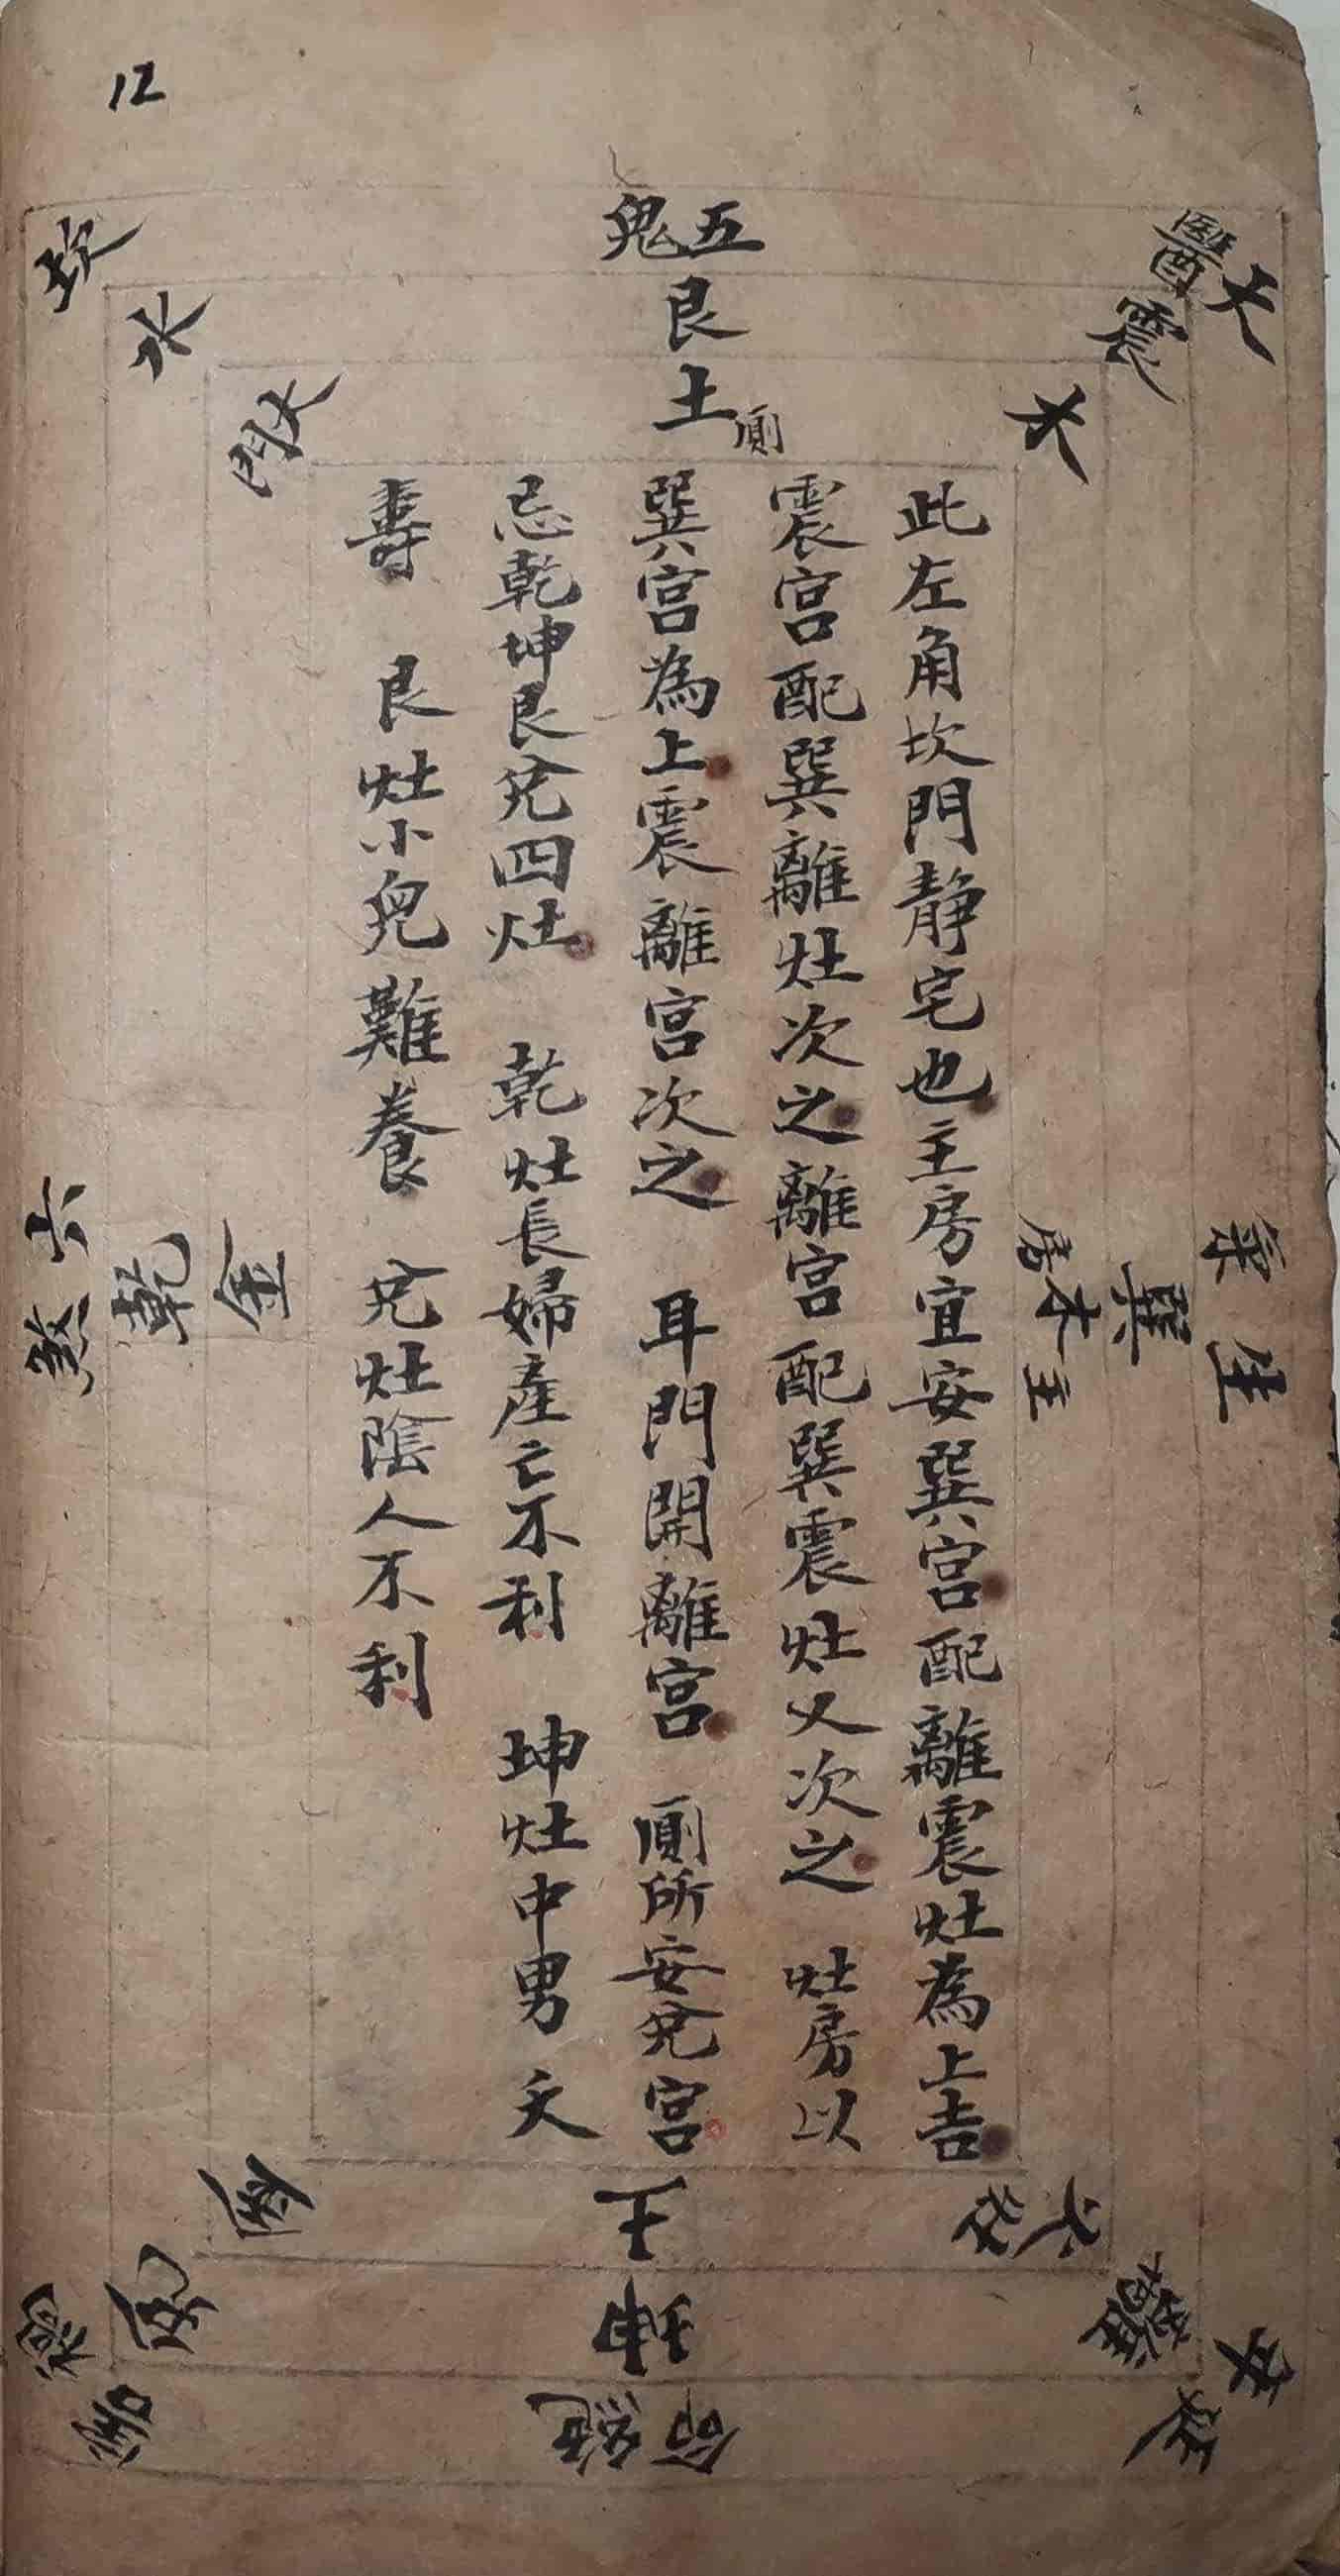 12
五鬼
艮
土
廁
天醫
震
木
坎
水
門
此左角坎門靜宅也主房宜安巽宮配離震灶為上吉
震宮配巽離灶次之離宮配巽震灶又次之 灶房以
巽宮為上震離宮次之 耳門開離宮 廁所安兌宮
忌乾坤艮兌四灶 乾灶長婦產亡不利 坤灶中男夭
壽 艮灶小兒難養 兌灶陰人不利
生氣
巽
主木房
六煞
乾
金
延年
離
火
土
坤
絕命
禍害
兌
金